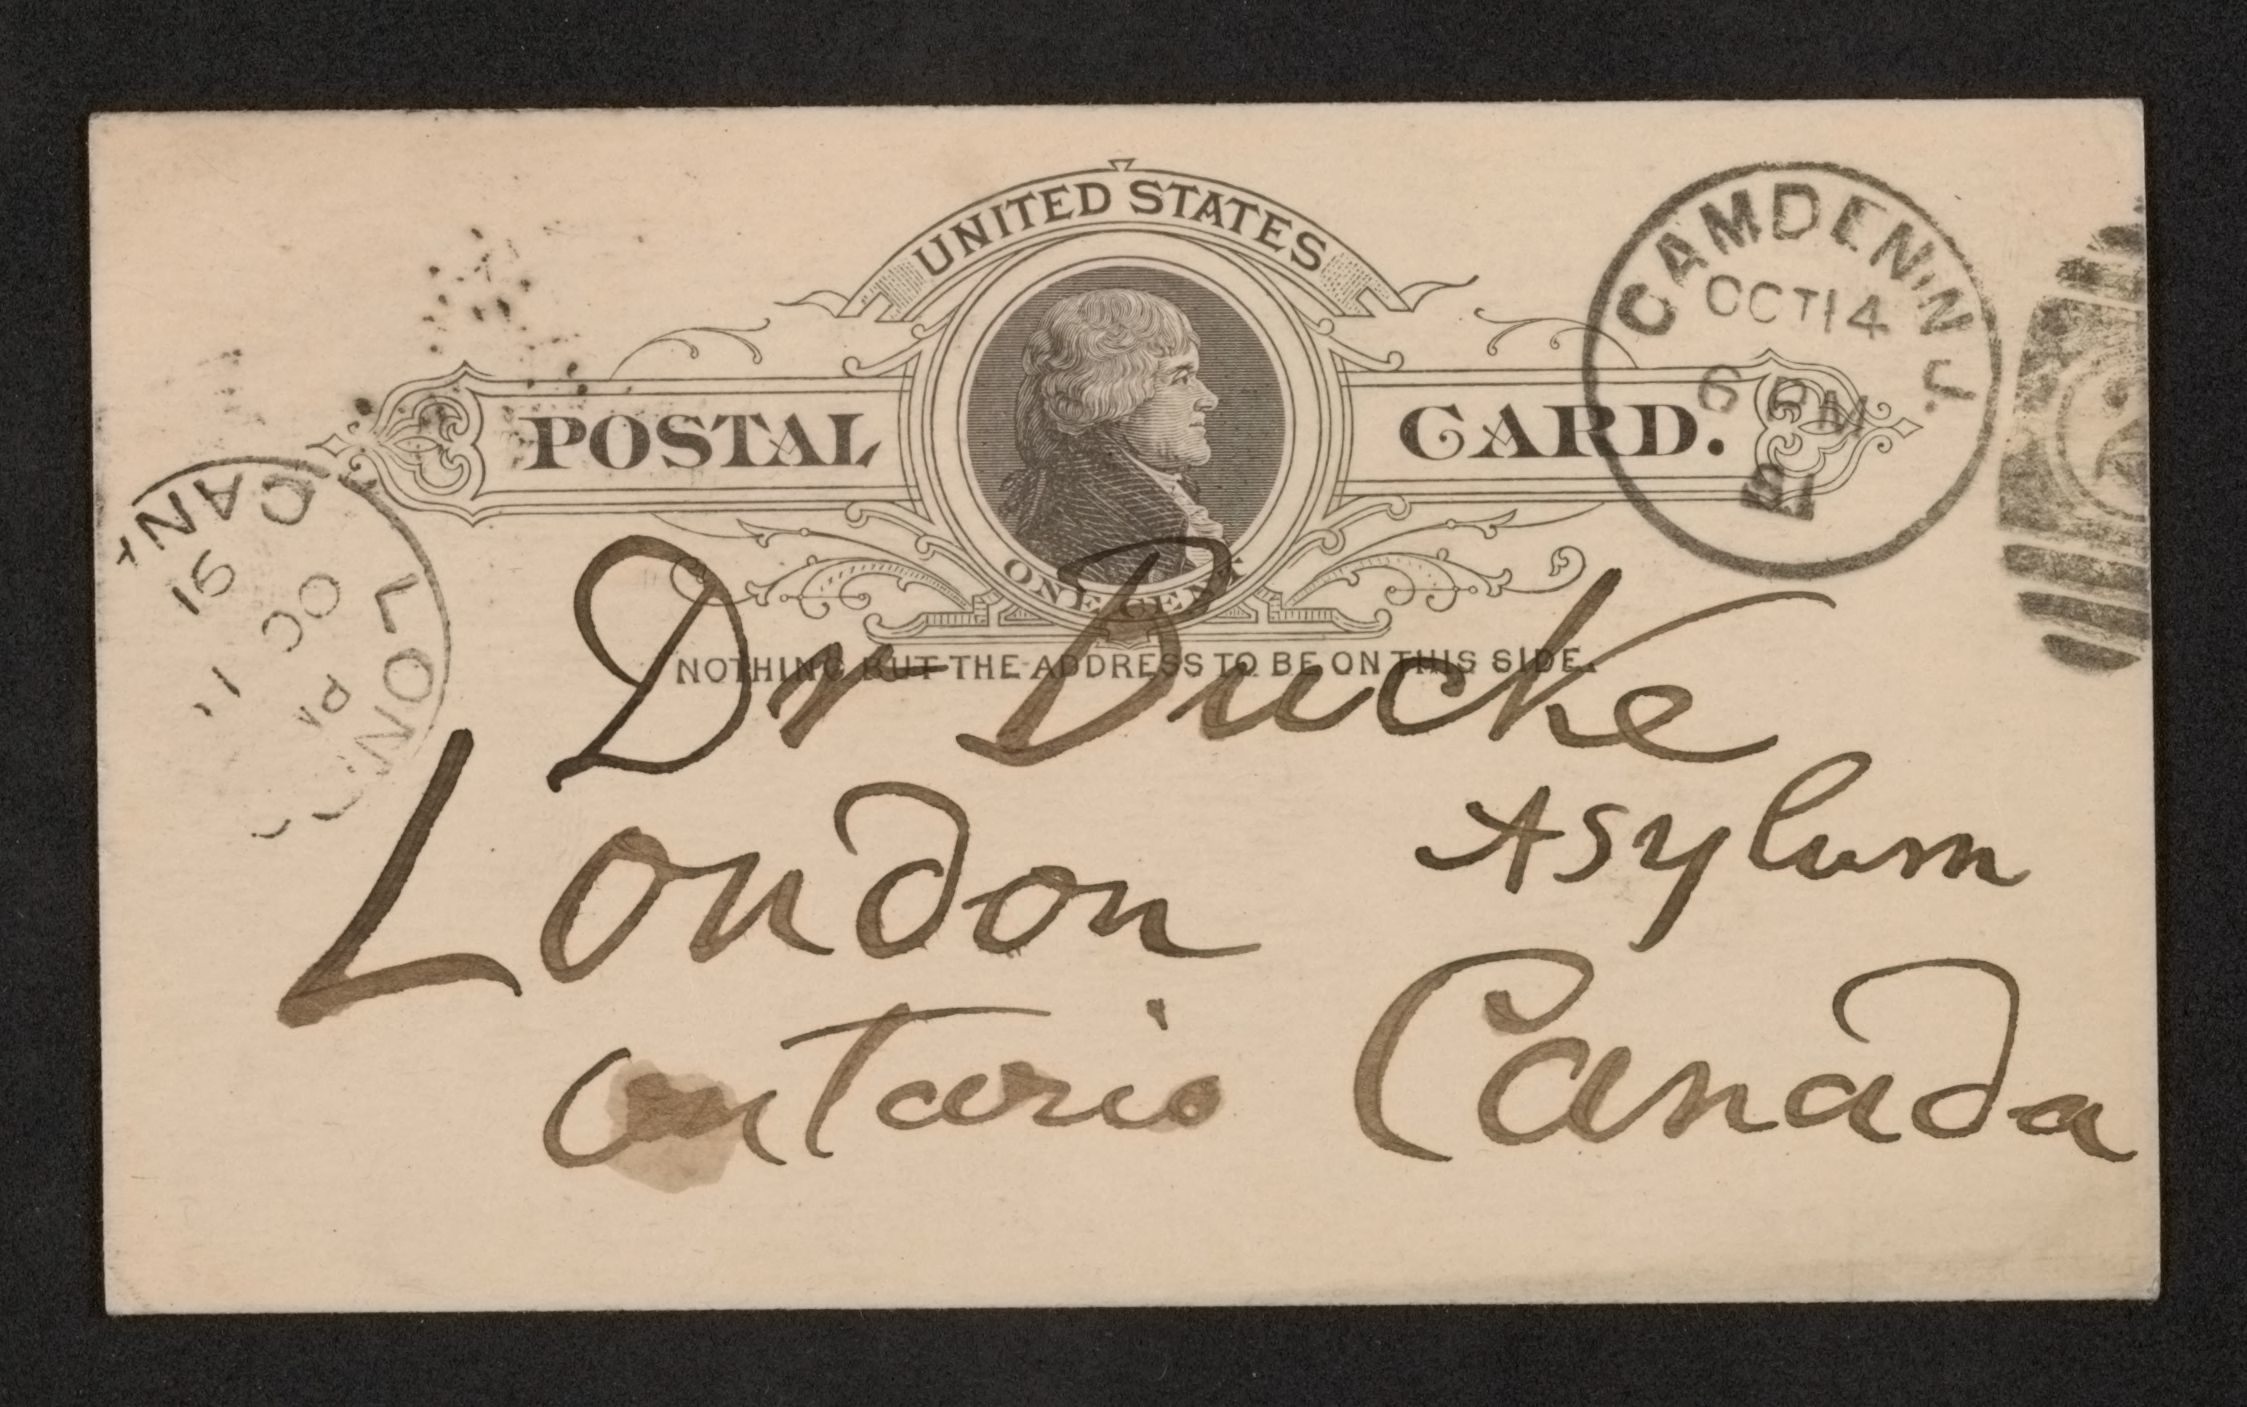 UNITED STATES
POSTAL CARD.
ONE CENT
NOTHING BUT THE ADDRESS TO BE ON THIS SIDE.
CAMDEN, N.J.
OCT 14
6 PM
91
LOND
CANA
PM
OC
91
Dr Bucke
Asylum
London
Ontario Canada